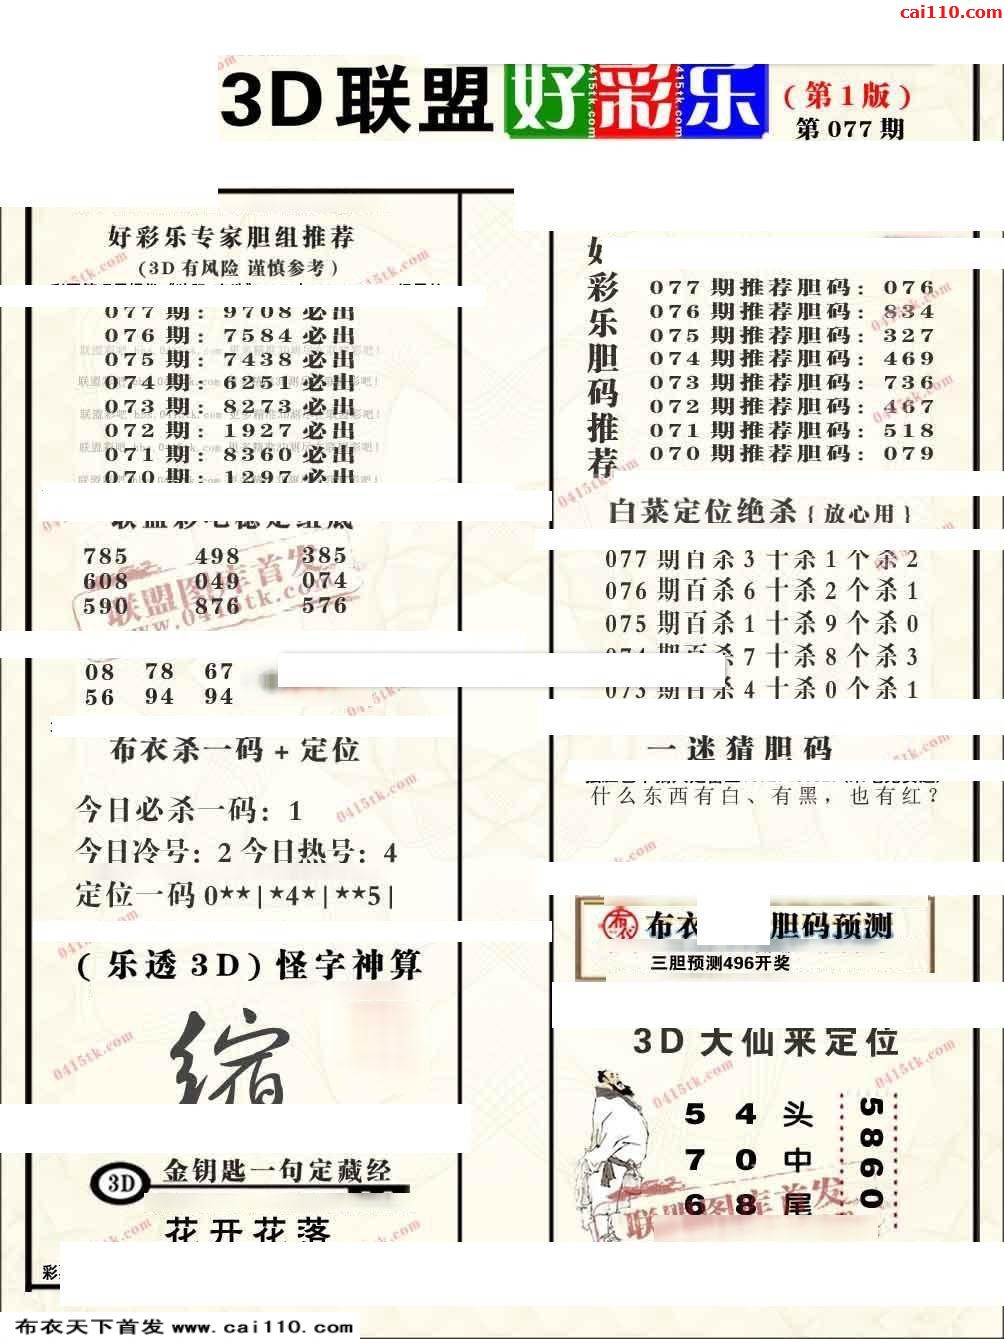 cai110.com
3D联盟 好彩乐 (第1版)
第077期
好彩乐专家胆组推荐
(3D有风险 谨慎参考)
077期: 9708必出
076期: 7584必出
075期: 7438必出
074期: 6251必出
073期: 8273必出
072期: 1927必出
071期: 8360必出
070期: 1297必出
785 498 385
608 049 074
590 876 576
08 78 67
56 94 94
布衣杀一码+定位
今日必杀一码: 1
今日冷号: 2 今日热号: 4
定位一码 0**|*4*|**5|
(乐透3D)怪字神算
缩
3D 金钥匙一句定藏经
花开花落
好彩乐胆码推荐
077期推荐胆码: 076
076期推荐胆码: 834
075期推荐胆码: 327
074期推荐胆码: 469
073期推荐胆码: 736
072期推荐胆码: 467
071期推荐胆码: 518
070期推荐胆码: 079
白菜定位绝杀{放心用}
077期百杀3十杀1个杀2
076期百杀6十杀2个杀1
075期百杀1十杀9个杀0
074期百杀7十杀8个杀3
073期百杀4十杀0个杀1
一迷猜胆码
什么东西有白、有黑，也有红?
布衣 胆码预测
三胆预测496开奖
3D大仙来定位
5 4 头
7 0 中
6 8 尾
5860
联盟图库首发
www.0415tk.com
联盟图库首发
0415tk.com
布衣天下首发 www.cai110.com